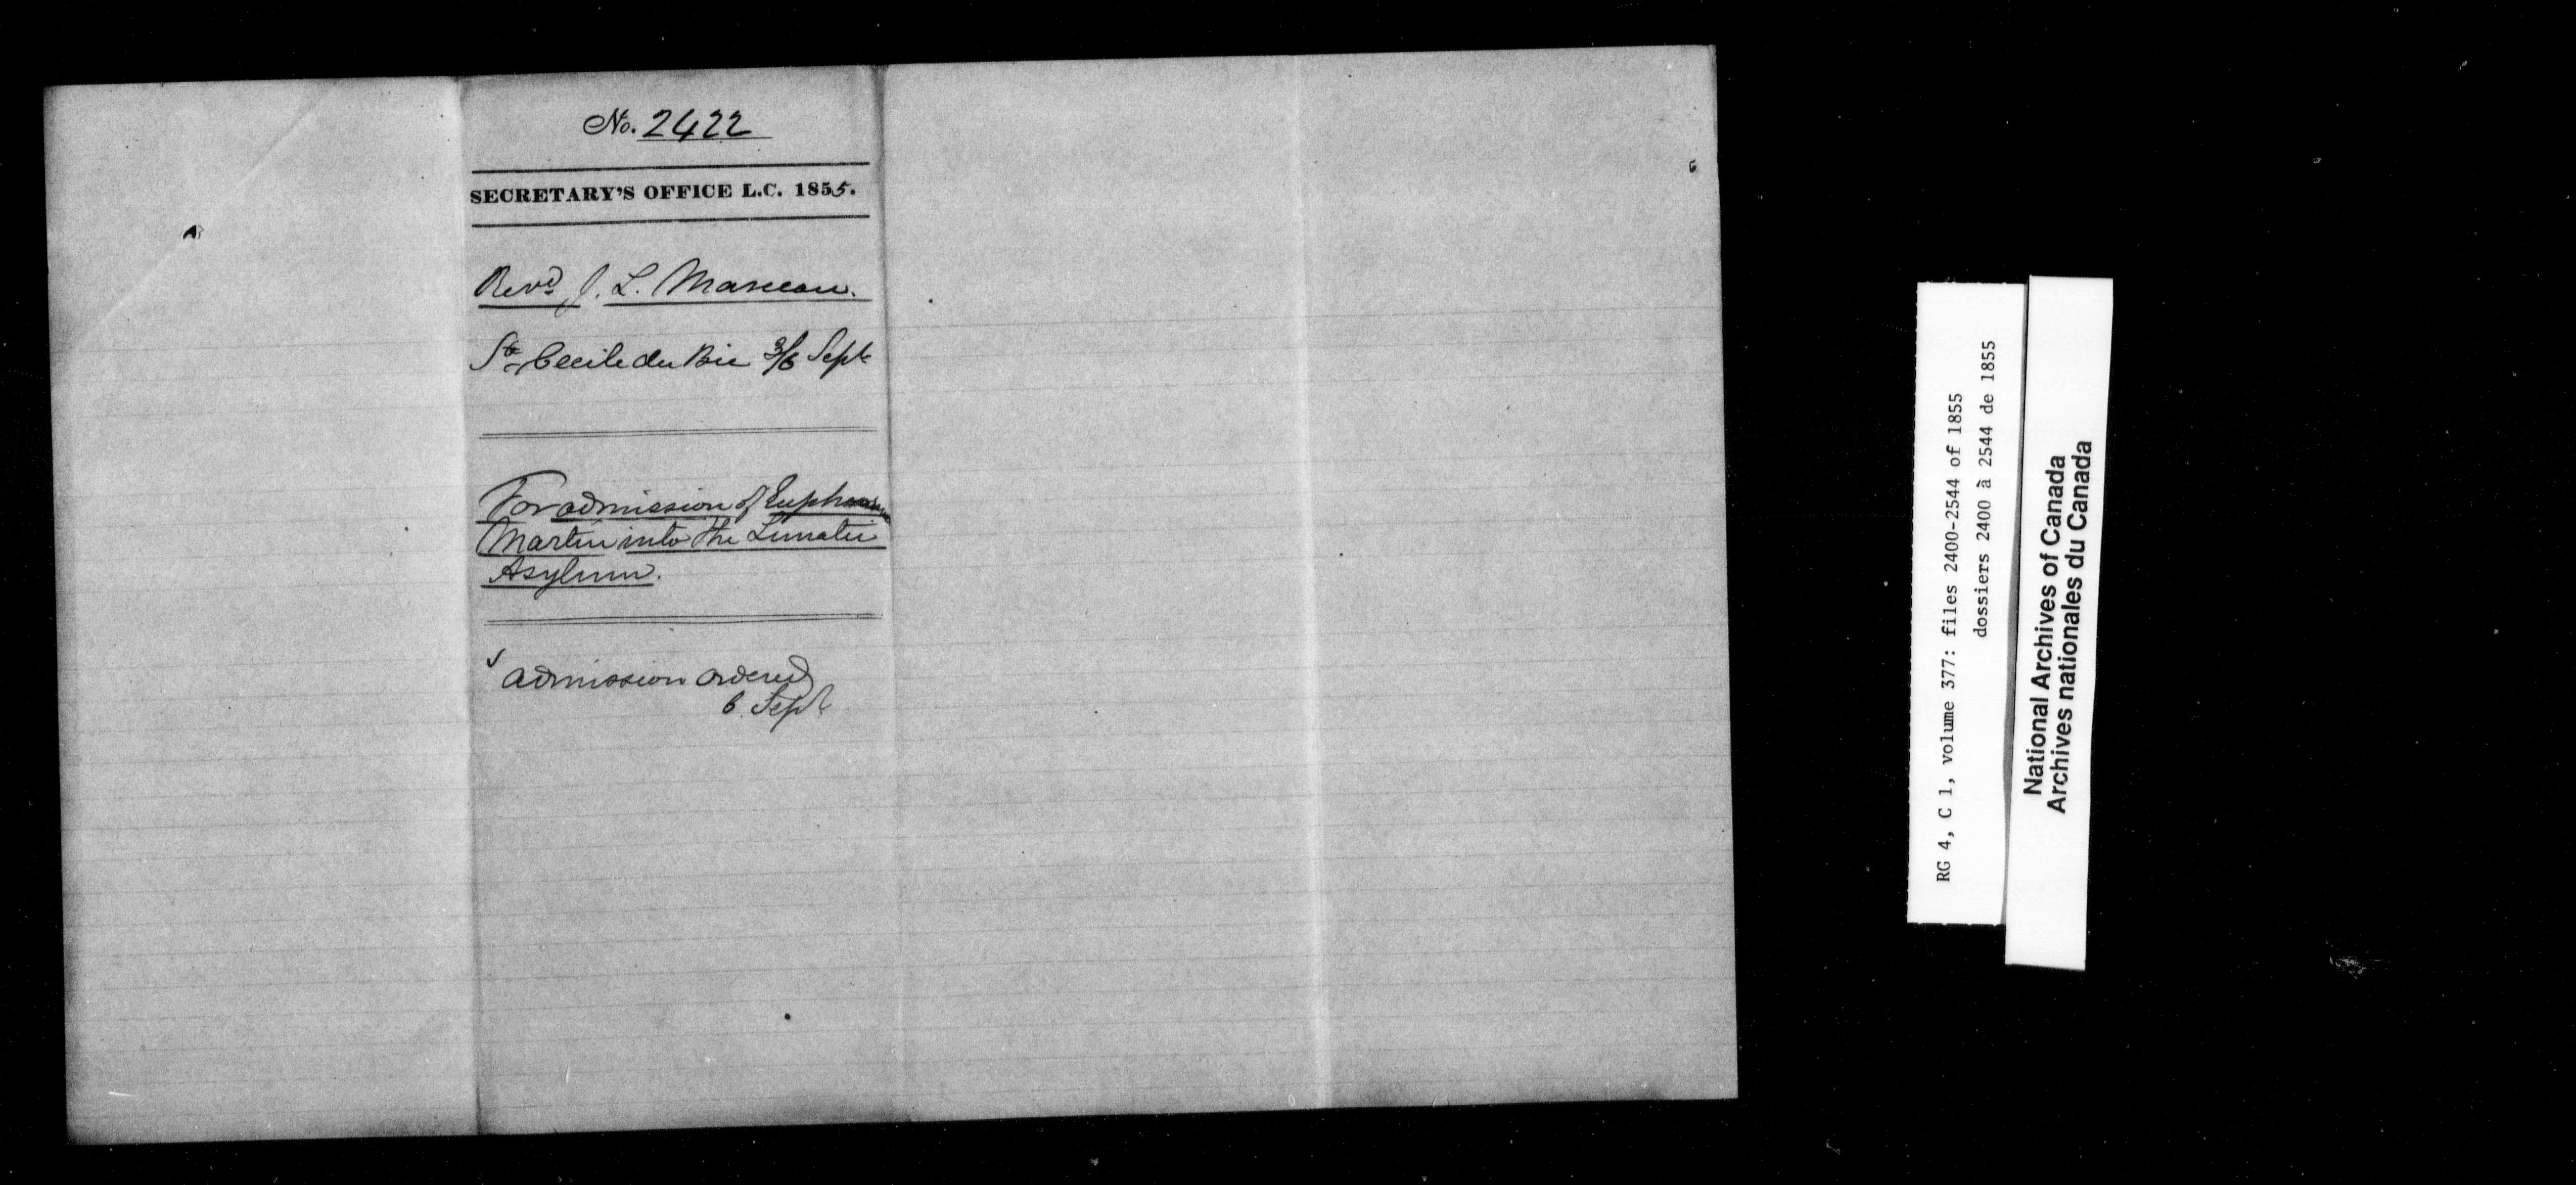 No. 2422
SECRETARY'S OFFICE L.C. 1855.
Revd J. L. Marceau.
Ste Cecile du Bic 3/6 Sept
For admission of
Martin into the Lunatic
Asylum.
admission ordered
6 Sept
RG 4, C 1, volume 377: files 2400-2544 of 1855
dossiers 2400 à 2544 de 1855
National Archives of Canada
Archives nationales du Canada